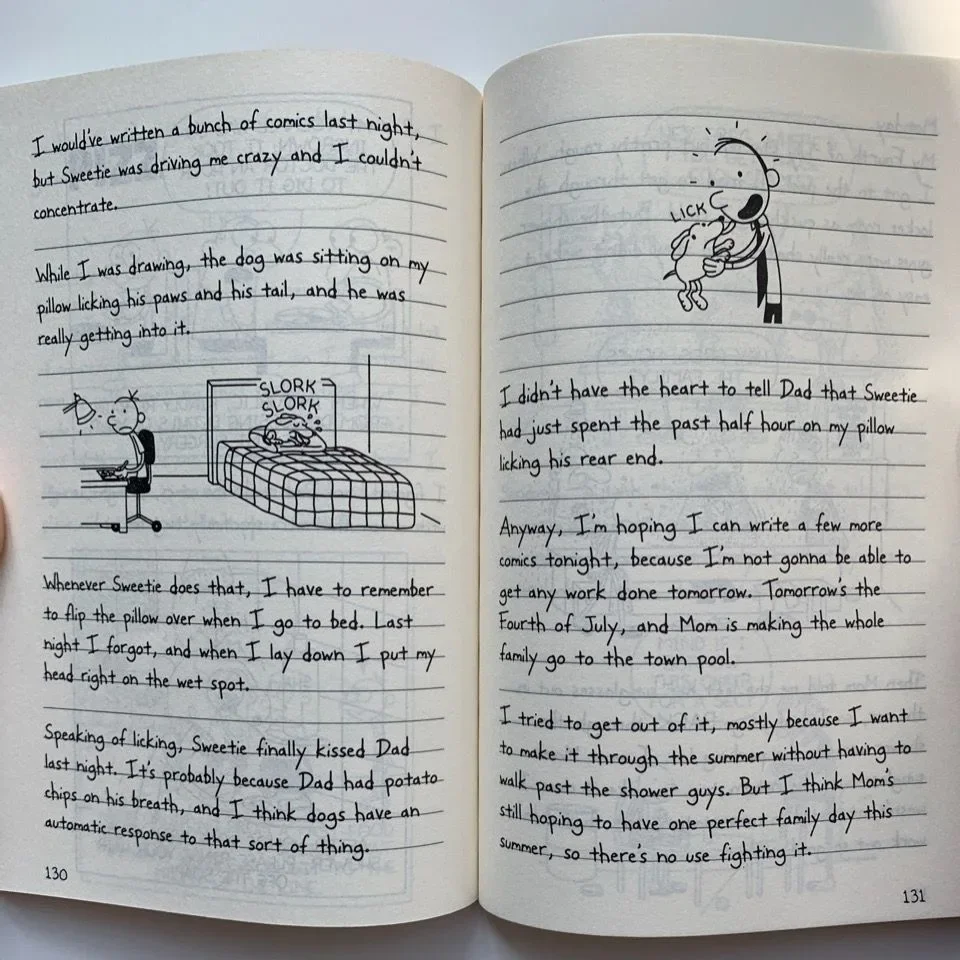 I would've written a bunch of comics last night,
but Sweetie was driving me crazy and I couldn't
concentrate.
While I was drawing, the dog was sitting on my
pillow licking his paws and his tail, and he was
really getting into it.
SLORK
SLORK
Whenever Sweetie does that, I have to remember
to flip the pillow over when I go to bed. Last
night I forgot, and when I lay down I put my
head right on the wet spot.
Speaking of licking, Sweetie finally kissed Dad
last night. It's probably because Dad had potato
chips on his breath, and I think dogs have an
automatic response to that sort of thing.
130
LICK
I didn't have the heart to tell Dad that Sweetie
had just spent the past half hour on my pillow
licking his rear end.
Anyway, I'm hoping I can write a few more
comics tonight, because I'm not gonna be able to
get any work done tomorrow. Tomorrow's the
Fourth of July, and Mom is making the whole
family go to the town pool.
I tried to get out of it, mostly because I want
to make it through the summer without having to
walk past the shower guys. But I think Mom's
still hoping to have one perfect family day this
summer, so there's no use fighting it.
131